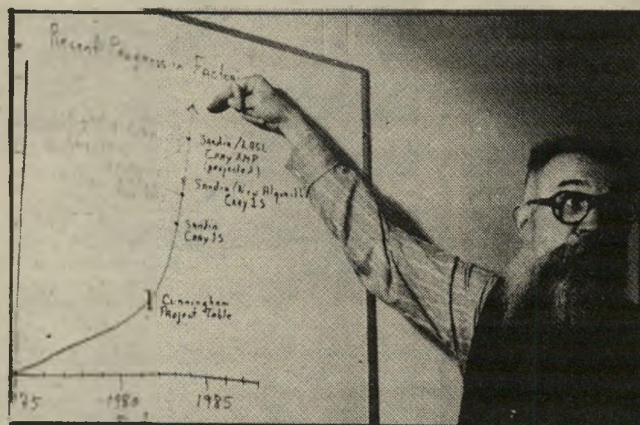 Recent Progress in Factor
Sandia/LOSL
Cray XMP
(projected)
Sandia/(New Algorith
Cray 1S
Sandia
Cray 1S
Cunningham
Project Table
1980
1985